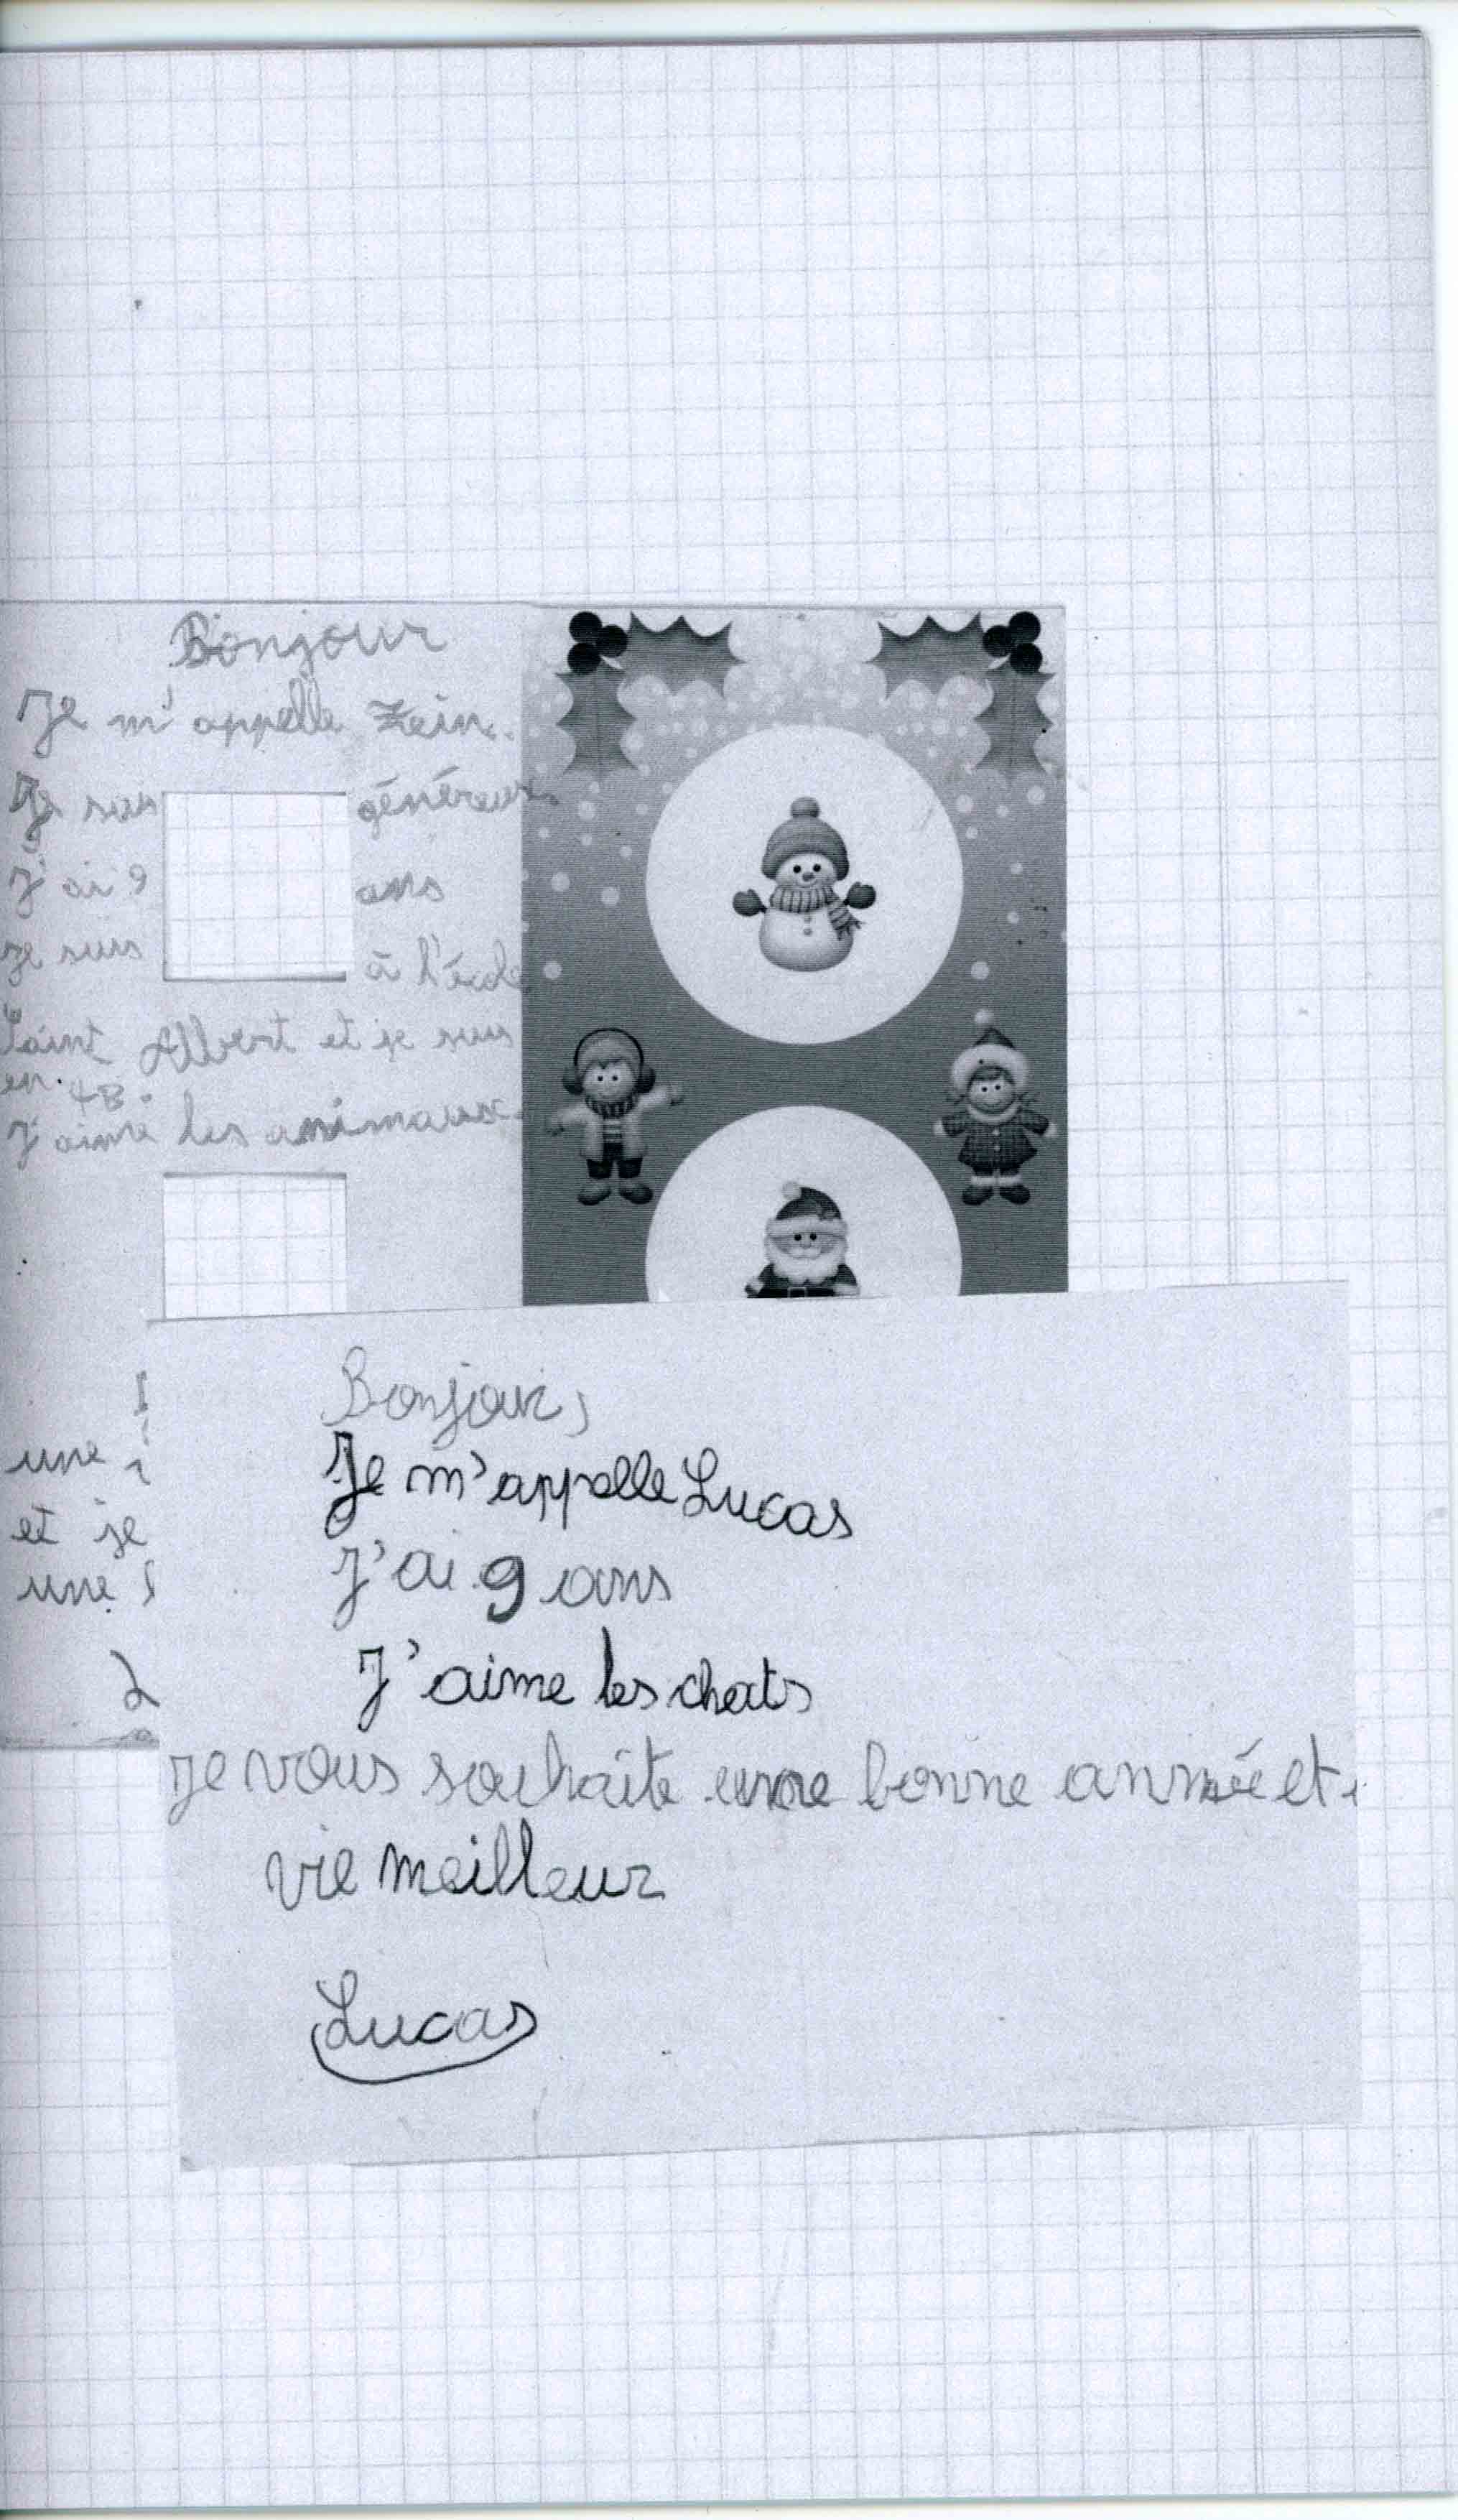 Bonjour
Je m'appelle Zein.
Je suis généreux.
J'ai 9 ans
Je suis à l'école
Saint Albert et je suis
en 4B.
J'aime les animaux.
une
et je
une
Bonjour,
Je m'appelle Lucas
J'ai 9 ans
J'aime les chats
Je vous souhaite une bonne année et
vie meilleur
Lucas